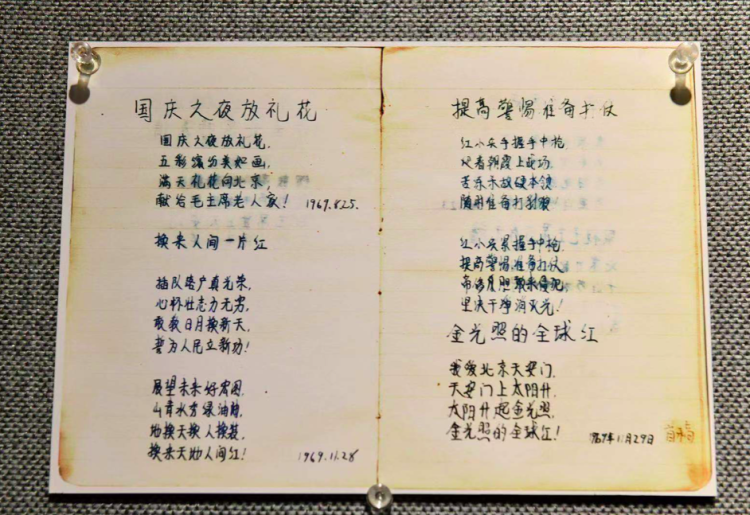 国庆之夜放礼花
国庆之夜放礼花,
五彩缤纷美如画,
满天礼花向北京,
献给毛主席老人家! 1969.8.25.
换来人间一片红
插队落户真光荣,
心怀壮志力无穷,
敢教日月换新天,
誓为人民立新功!
展望未来好宏图,
山青水秀绿油油,
地换天换人换装,
换来天地人间红!
1969.11.28
提高警惕准备打仗
红小兵手握手中枪,
迎着朝霞上战场,
苦练
本领
随时准备打豺狼
红小兵紧握手中枪
提高警惕准备打仗
帝修反胆敢来侵犯,
里干净消灭光!
金光照的全球红
我爱北京天安门,
天安门上太阳升,
太阳升起金光照,
金光照的全球红!
1969年11月29日